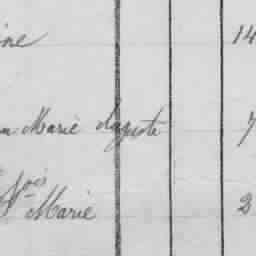 ine 14
Marie Auguste 7
Fois Marie 2